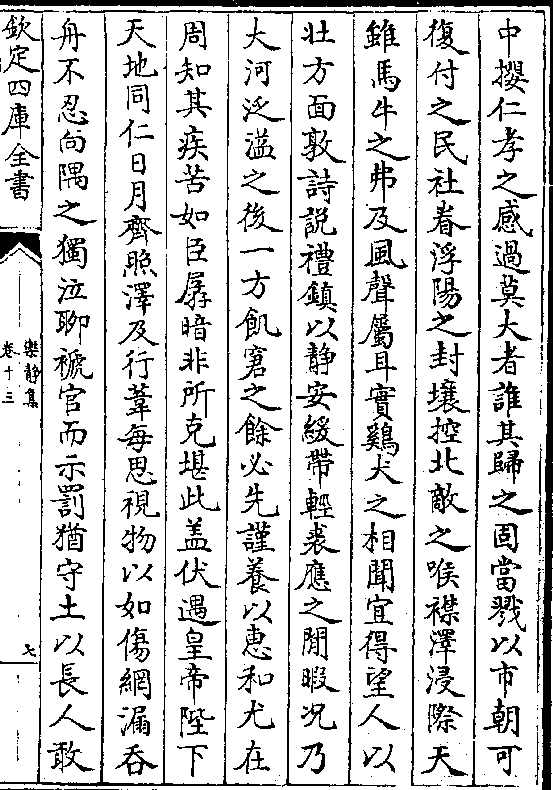 中攖仁孝之感過莫大者誰其歸之固當戮以市朝可
復付之民社眷浮陽之封壤控北敵之喉襟澤浸際天
雖馬牛之弗及風聲屬耳實鷄犬之相聞宜得望人以
壯方面敦詩説禮鎮以静安緩帶輕裘應之閒暇况乃
大河泛溢之後一方飢窘之餘必先謹養以惠和尤在
周知其疾苦如臣孱暗非所克堪此盖伏遇皇帝陛下
天地同仁日月齊照澤及行葦每思視物以如傷網漏吞
舟不忍向隅之獨泣聊褫官而示罰猶守土以長人敢
欽定四庫全書
樂静集
卷十三
七